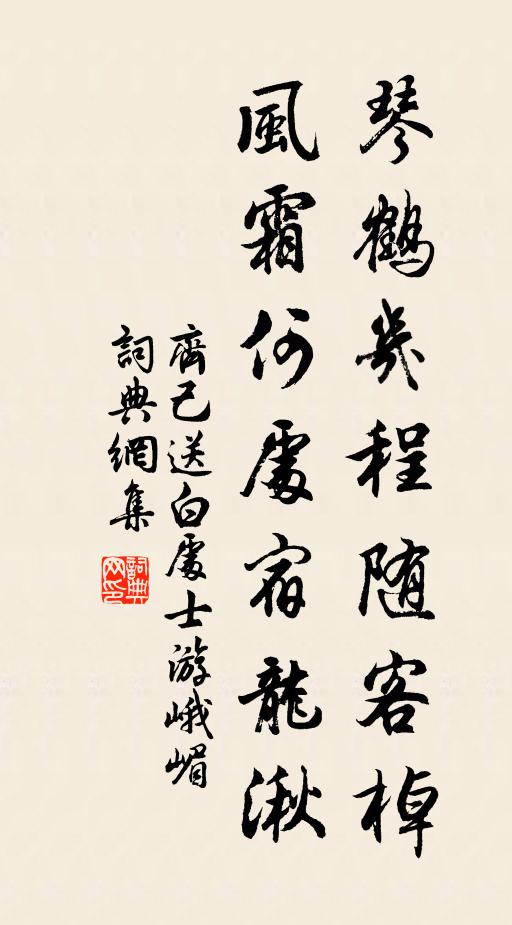 琴鶴幾程随客棹
風霜何處宿龍湫
齊己送白處士游峨嵋
詞典網集
詞典网印